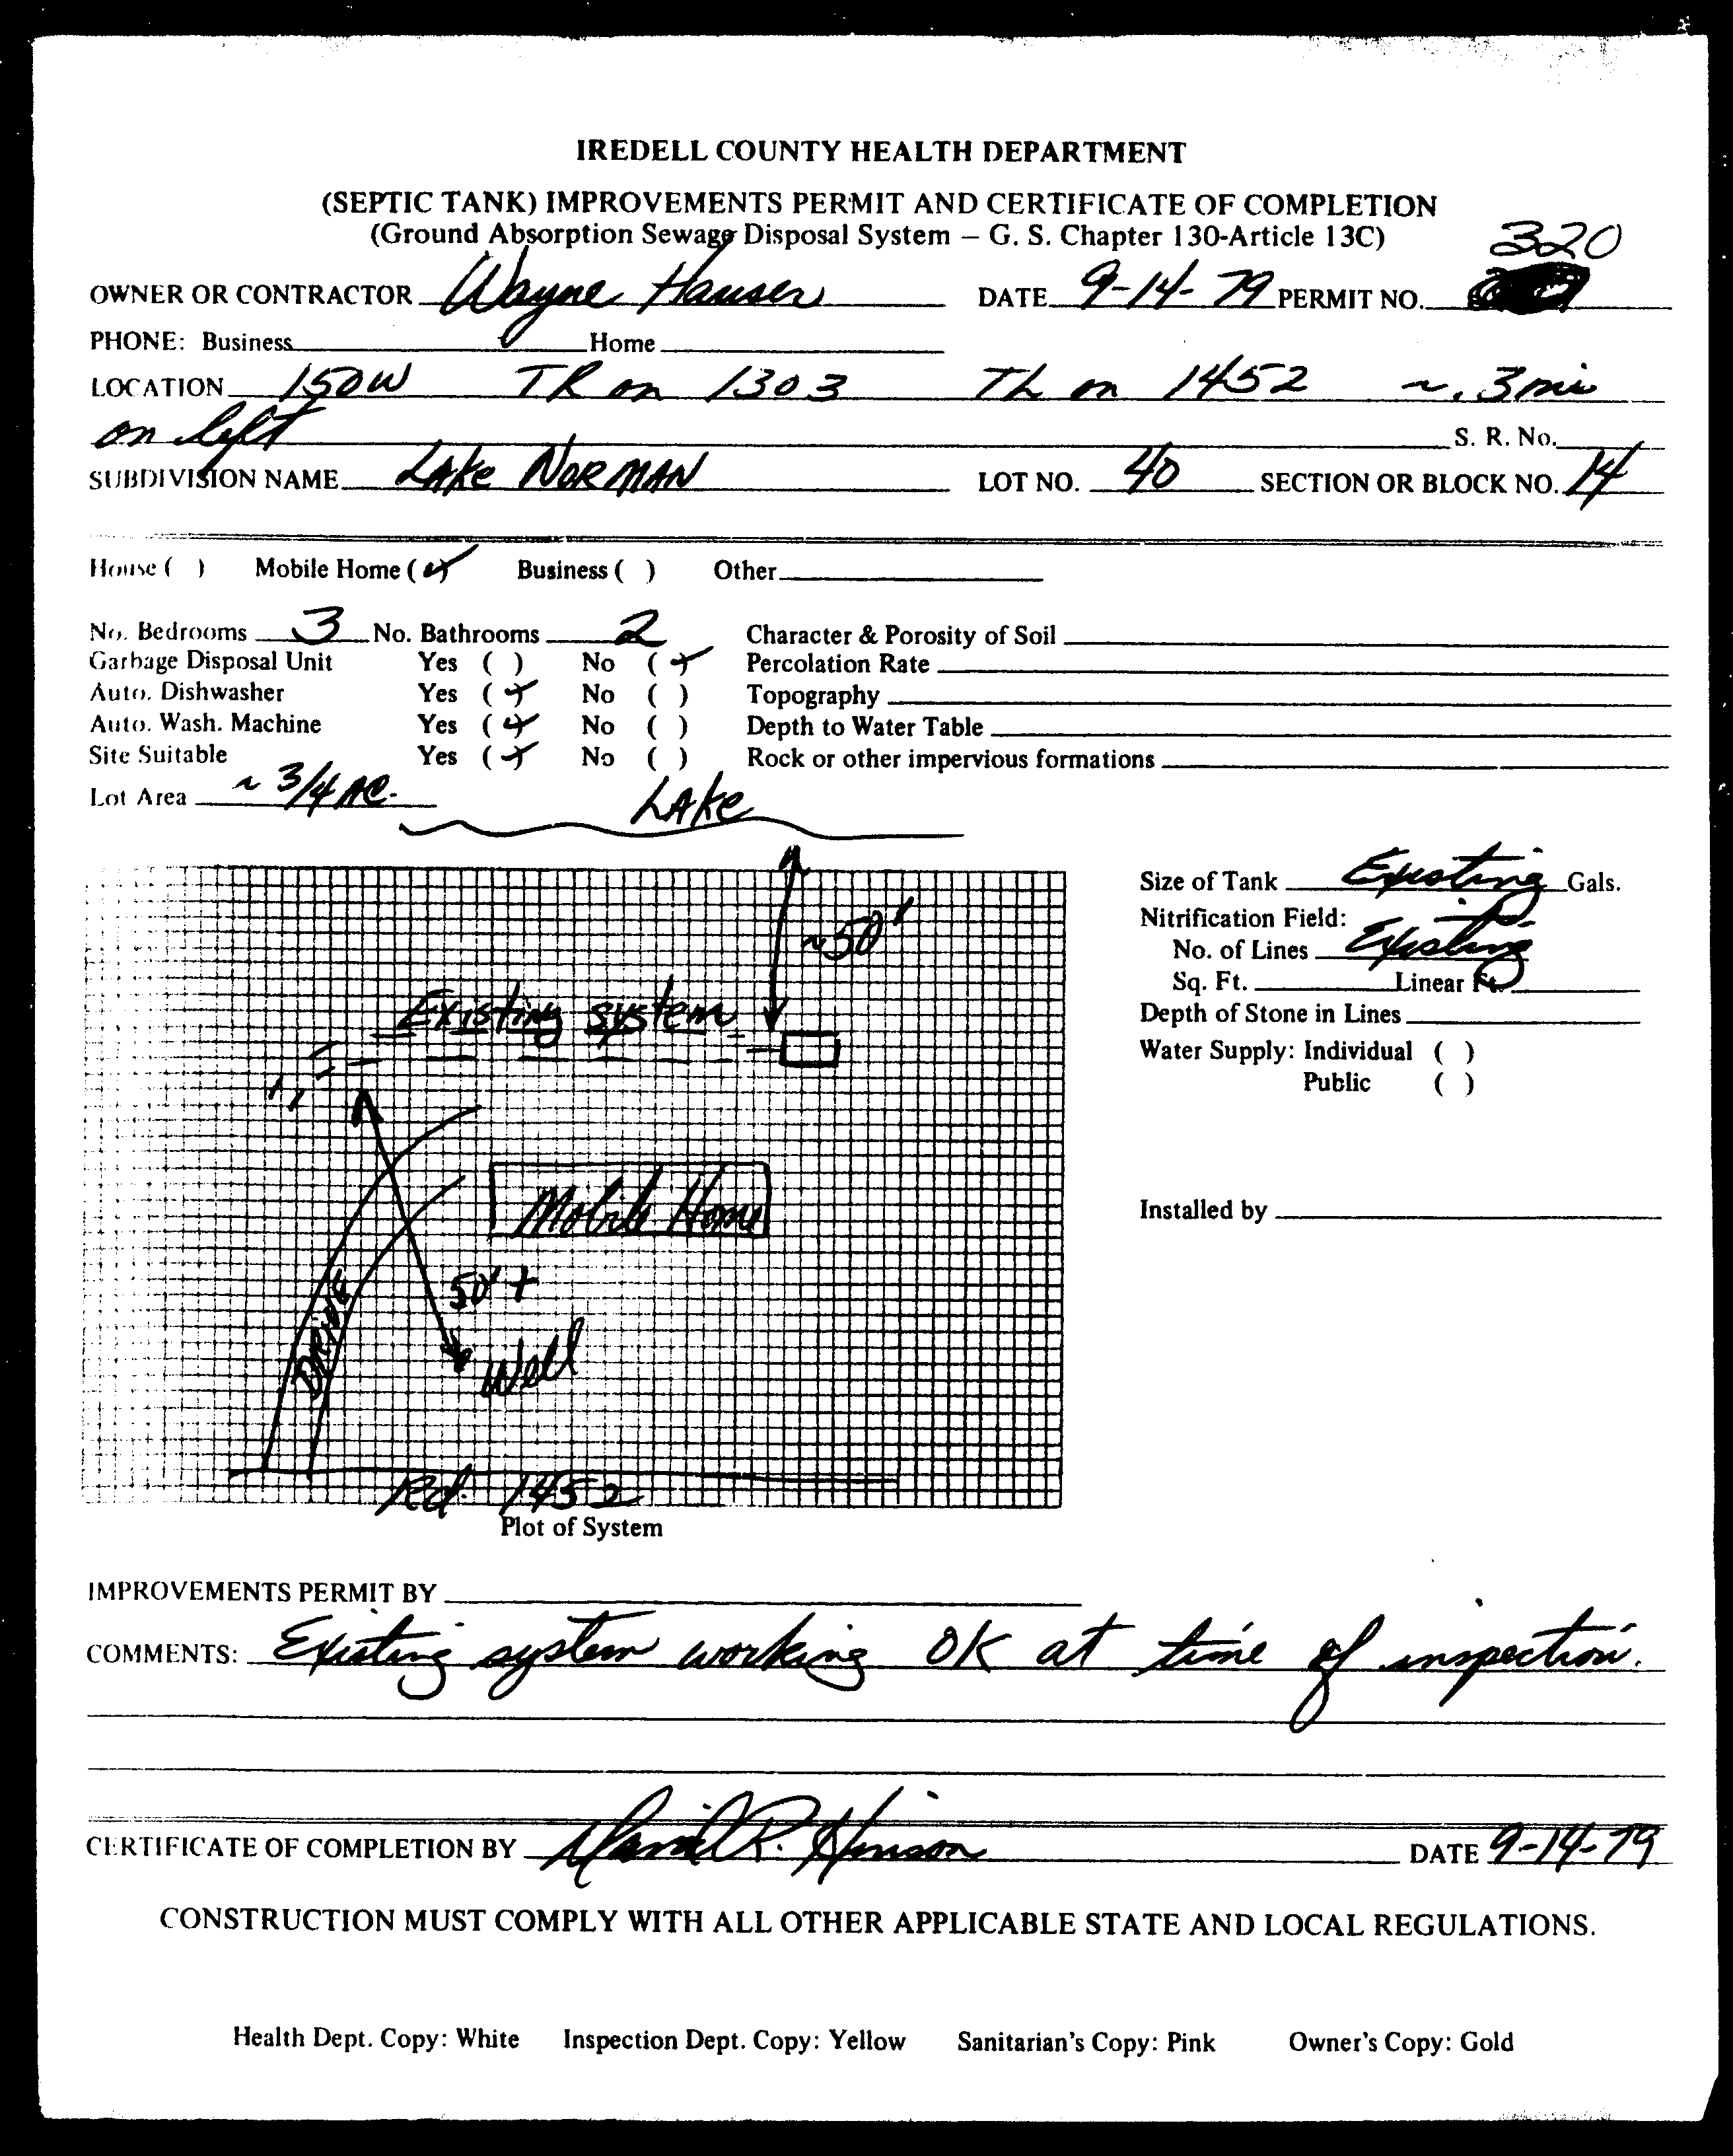 IREDELL COUNTY HEALTH DEPARTMENT
(SEPTIC TANK) IMPROVEMENTS PERMIT AND CERTIFICATE OF COMPLETION
(Ground Absorption Sewage Disposal System – G. S. Chapter 130-Article 13C)
320
OWNER OR CONTRACTOR Wayne Hauser DATE 9-14-79 PERMIT NO.
PHONE: Business Home
LOCATION 150W TR on 1303 TL on 1452 ~.3 mi
on left S. R. No.
SUBDIVISION NAME LAKE NORMAN LOT NO. 40 SECTION OR BLOCK NO. 14
House ( ) Mobile Home (✓) Business ( ) Other
No. Bedrooms 3 No. Bathrooms 2 Character & Porosity of Soil
Garbage Disposal Unit Yes ( ) No (✓) Percolation Rate
Auto. Dishwasher Yes (✓) No ( ) Topography
Auto. Wash. Machine Yes (✓) No ( ) Depth to Water Table
Site Suitable Yes (✓) No ( ) Rock or other impervious formations
Lot Area ~ 3/4 AC.
LAKE
~50'
Existing system
Mobile Home
50' +
Well
DRIVE
Rd. 1452
Plot of System
Size of Tank Existing Gals.
Nitrification Field:
No. of Lines Existing
Sq. Ft. Linear Ft.
Depth of Stone in Lines
Water Supply: Individual ( )
Public ( )
Installed by
IMPROVEMENTS PERMIT BY
COMMENTS: Existing system working OK at time of inspection.
CERTIFICATE OF COMPLETION BY David R. Hinson DATE 9-14-79
CONSTRUCTION MUST COMPLY WITH ALL OTHER APPLICABLE STATE AND LOCAL REGULATIONS.
Health Dept. Copy: White Inspection Dept. Copy: Yellow Sanitarian's Copy: Pink Owner's Copy: Gold